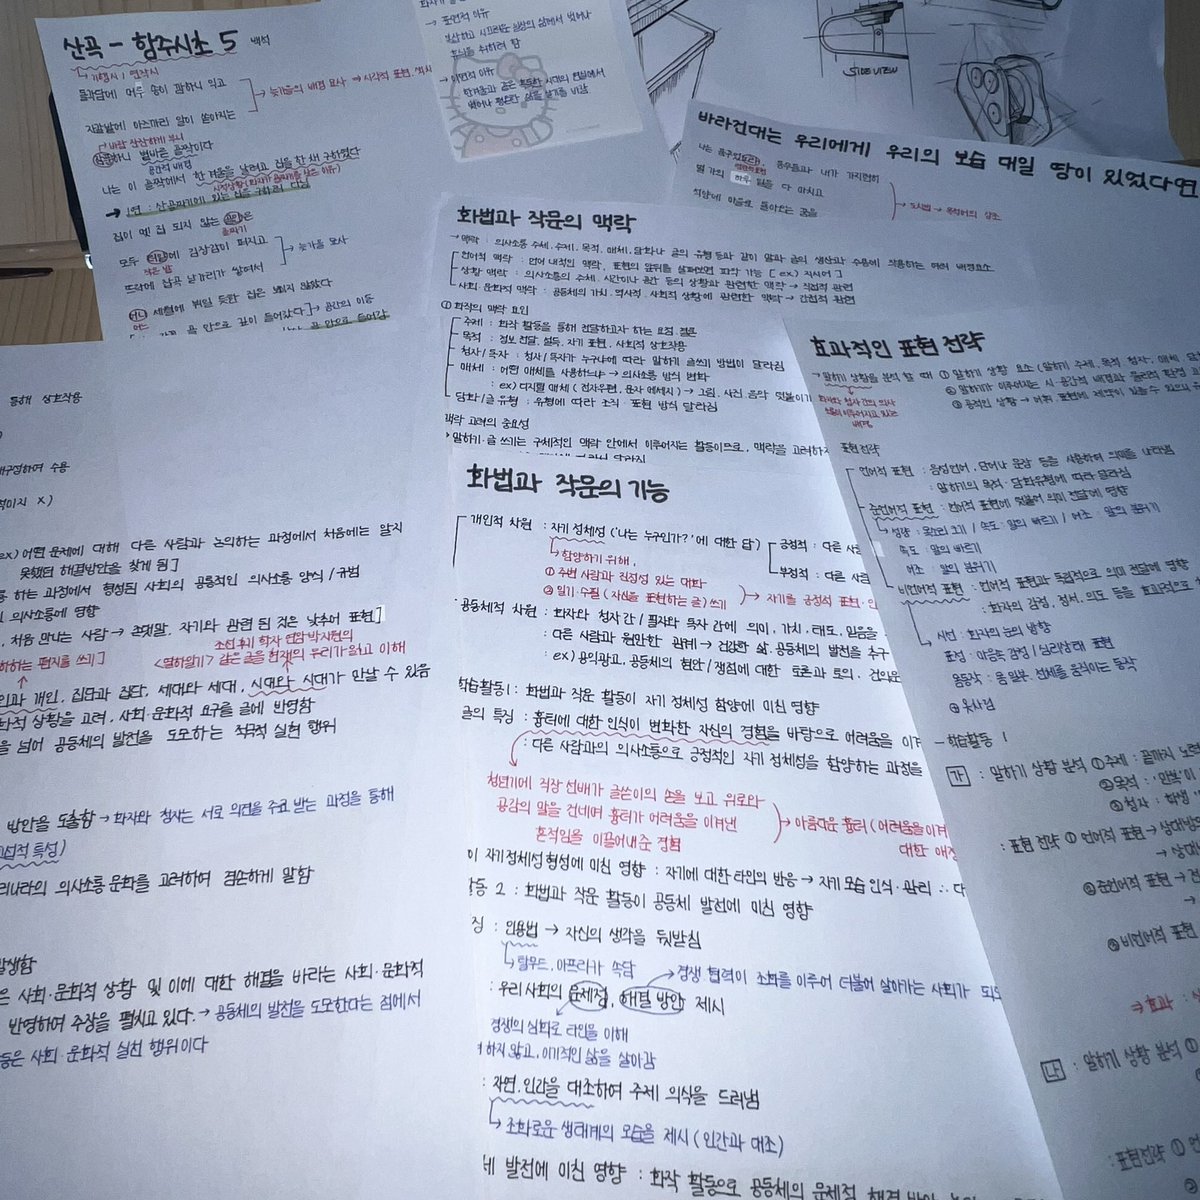 산곡 - 함주시초 5 백석
기행시, 연작시
돌각담에 머루 송이 깜하니 익고
→ 늦가을의 배경 묘사 ⇒ 시각적 표현
자갈밭에 아즈까리 알이 쏟아지는
잠풍하니 볕바른 골짝이다
공간적 배경
나는 이 골짝에서 한 겨울을 날려고 집을 한 채 구하였다
→ 1연 : 산골짜기에 있는 집을 구하러 다님
집이 몇 집 되지 않는 골안은
골짜기
모두 터앝에 김장감이 퍼지고
→ 늦가을 묘사
작은 밭
뜨락에 잡곡 낟가리가 쌓여서
어니 세월에 뷔일 듯한 집은 뵈이지 않었다
어느
→ 공간의 이동
→ 표면적 이유
휴식을 취하려 함
→ 이면적 이유
SIDE VIEW
바라건대는 우리에게 우리의 보습 대일 땅이 있었다면
나는 꿈꾸었노라, 동무들과 내가 가지런히
벌 가의 하루 일을 다 마치고
석양에 마을로 돌아오는 꿈을
화법과 작문의 맥락
→ 맥락 : 의사소통 주체, 주제, 목적, 매체, 담화나 글의 유형 등과 같이 말과 글의 생산과 수용에 작용하는 여러 배경요소
언어적 맥락 : 언어 내적인 맥락, 표현의 앞뒤를 살펴보면 파악 가능 [ ex) 지시어 ]
상황 맥락 : 의사소통의 주체, 시간이나 공간 등의 상황과 관련한 맥락 → 직접적 관련
사회·문화적 맥락 : 공동체의 가치, 역사적·사회적 상황에 관련한 맥락 → 간접적 관련
① 화작의 맥락 요인
주제 : 화작 활동을 통해 전달하고자 하는 요점, 결론
목적 : 정보 전달, 설득, 자기 표현, 사회적 상호작용
청자/독자 : 청자/독자가 누구냐에 따라 말하게 글쓰기 방법이 달라짐
매체 : 어떤 매체를 사용하느냐 → 의사소통 방식 변화
: ex) 디지털 매체 ( 전자우편, 문자 메세지 ) → 그림, 사진, 음악 덧붙이기
담화/글 유형 : 유형에 따라 조직·표현 방식 달라짐
맥락 고려의 중요성
말하기·글 쓰기는 구체적인 맥락 안에서 이루어지는 활동이므로, 맥락을 고려하지
효과적인 표현 전략
→ 말하기 상황을 분석할 때 ① 말하기 상황 요소 ( 말하기 주제, 목적, 청자, 매체,
② 말하기가 이루어지는 시·공간적 배경과 물리적 환경
③ 공적인 상황 → 어휘, 표현에 제약이 있을 수 있으니
화자와 청자 간의 의사소통이 이루어지고 있는 배경
표현 전략
언어적 표현 : 음성언어, 단어나 문장 등을 사용하여 의미를 나타냄
: 말하기의 목적·담화유형에 따라 달라짐
준언어적 표현 : 언어적 표현에 덧붙어 의미 전달에 영향
속도 : 말의 빠르기
어조 : 말의 분위기
비언어적 표현 : 언어적 표현과 독립적으로 의미 전달에 영향
: 화자의 감정, 정서, 의도 등을 효과적으로
시선 : 화자의 눈의 방향
표정 : 마음속 감정 / 심리상태 표현
몸동작 : 몸 일부, 전체를 움직이는 동작
옷차림
학습활동 1
가 : 말하기 상황 분석 ① 주제 : 끝까지 노력
② 목적 :
③ 청자 : 학생
: 표현 전략 ① 언어적 표현 → 상대방
② 준언어적 표현 →
③ 비언어적 표현
⇒ 효과 :
나 : 말하기 상황 분석 ①
: 표현전략 ①
화법과 작문의 기능
개인적 차원 : 자기 정체성 ( '나는 누구인가?' 에 대한 답 )
긍정적 : 다른
부정적 : 다른
함양하기 위해,
① 주변 사람과 진정성 있는 대화
② 일기·수필 ( 자신을 표현하는 글 ) 쓰기
→ 자기를 긍정적 표현·
공동체적 차원 : 화자와 청자 간 / 필자와 독자 간에 의미, 가치, 태도, 믿음을
: 다른 사람과 원만한 관계 → 건강한 삶, 공동체의 발전을 추구
: ex) 공익광고, 공동체의 현안 / 쟁점에 대한 토론과 토의, 건의문
학습활동 1 : 화법과 작문 활동이 자기 정체성 함양에 미친 영향
글의 특징 : 흉터에 대한 인식이 변화한 자신의 경험을 바탕으로 어려움을
: 다른 사람과의 의사소통으로 긍정적인 자기 정체성을 함양하는 과정을
청년기에 직장 선배가 글쓴이의 손을 보고 위로와
공감의 말을 건네며 흉터가 어려움을 이겨낸
흔적임을 이끌어내 준 경험
→ 아름다운 흉터 ( 어려움을 이겨
대한 애정
이 자기정체성 형성에 미친 영향 : 자기에 대한 타인의 반응 → 자기 모습 인식·관리 ∴
활동 2 : 화법과 작문 활동이 공동체 발전에 미친 영향
징 : 인용법 → 자신의 생각을 뒷받침
탈무드, 아프리카 속담
→ 경쟁 협력이 조화를 이루어 더불어 살아가는 사회가
: 우리 사회의 문제점, 해결 방안 제시
경쟁의 심화로 타인을 이해
하지 않고, 이기적인 삶을 살아감
: 자연, 인간을 대조하여 주제 의식을 드러냄
조화로운 생태계의 모습을 제시 ( 인간과 대조 )
발전에 미친 영향 : 화작 활동으로 공동체의 문제점
통해 상호작용
재구성하여 수용
ex) 어떤 문제에 대해 다른 사람과 논의하는 과정에서 처음에는 알지
못했던 해결방안을 찾게 됨 ]
하는 과정에서 형성된 사회의 공통적인 의사소통 양식 / 규범
의사소통에 영향
처음 만나는 사람 → 존댓말, 자기와 관련 된 것은 낮추어 표현 ]
하는 편지를 쓰기 ]
조선 후기 학자 연암 박지원의
<열하일기> 같은 글을 현재의 우리가 읽고 이해
개인과 개인, 집단과 집단, 세대와 세대, 시대와 시대가 만날 수 있음
상황을 고려, 사회·문화적 요구를 글에 반영함
을 넘어 공동체의 발전을 도모하는 적극적 실현 행위
방안을 도출함 → 화자와 청자는 서로 의견을 주고 받는 과정을 통해
우리나라의 의사소통 문화를 고려하여 겸손하게 말함
발생함
은 사회·문화적 상황 및 이에 대한 해결을 바라는 사회·문화적
반영하여 주장을 펼치고 있다. → 공동체의 발전을 도모한다는 점에서
동은 사회·문화적 실천 행위이다